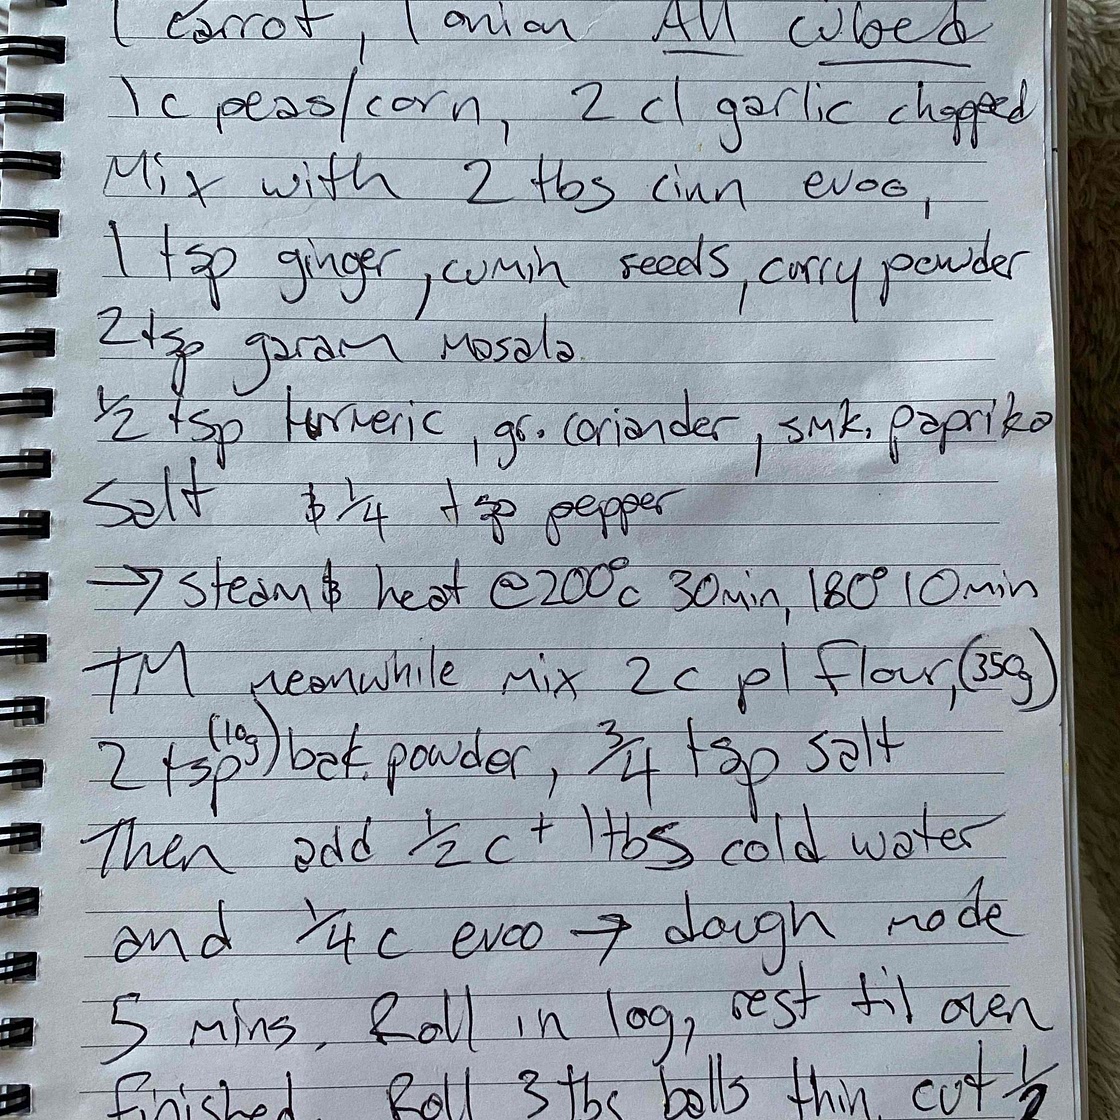 1 carrot, 1 onion All cubed
1c peas/corn, 2 cl garlic chopped
Mix with 2 tbs cinn evoo,
1 tsp ginger, cumin seeds, curry powder
2 tsp garam masala
1/2 tsp turmeric, gr. coriander, smk. paprika
Salt & 1/4 tsp pepper
→ steam & heat @200°c 30min, 180° 10min
TM meanwhile mix 2c pl flour, (350g)
2 tsp (10g) bak. powder, 3/4 tsp salt
Then add 1/2 c + 1 tbs cold water
and 1/4 c evoo → dough mode
5 mins. Roll in log, rest til oven
finished. Roll 3 tbs balls thin cut 1/2